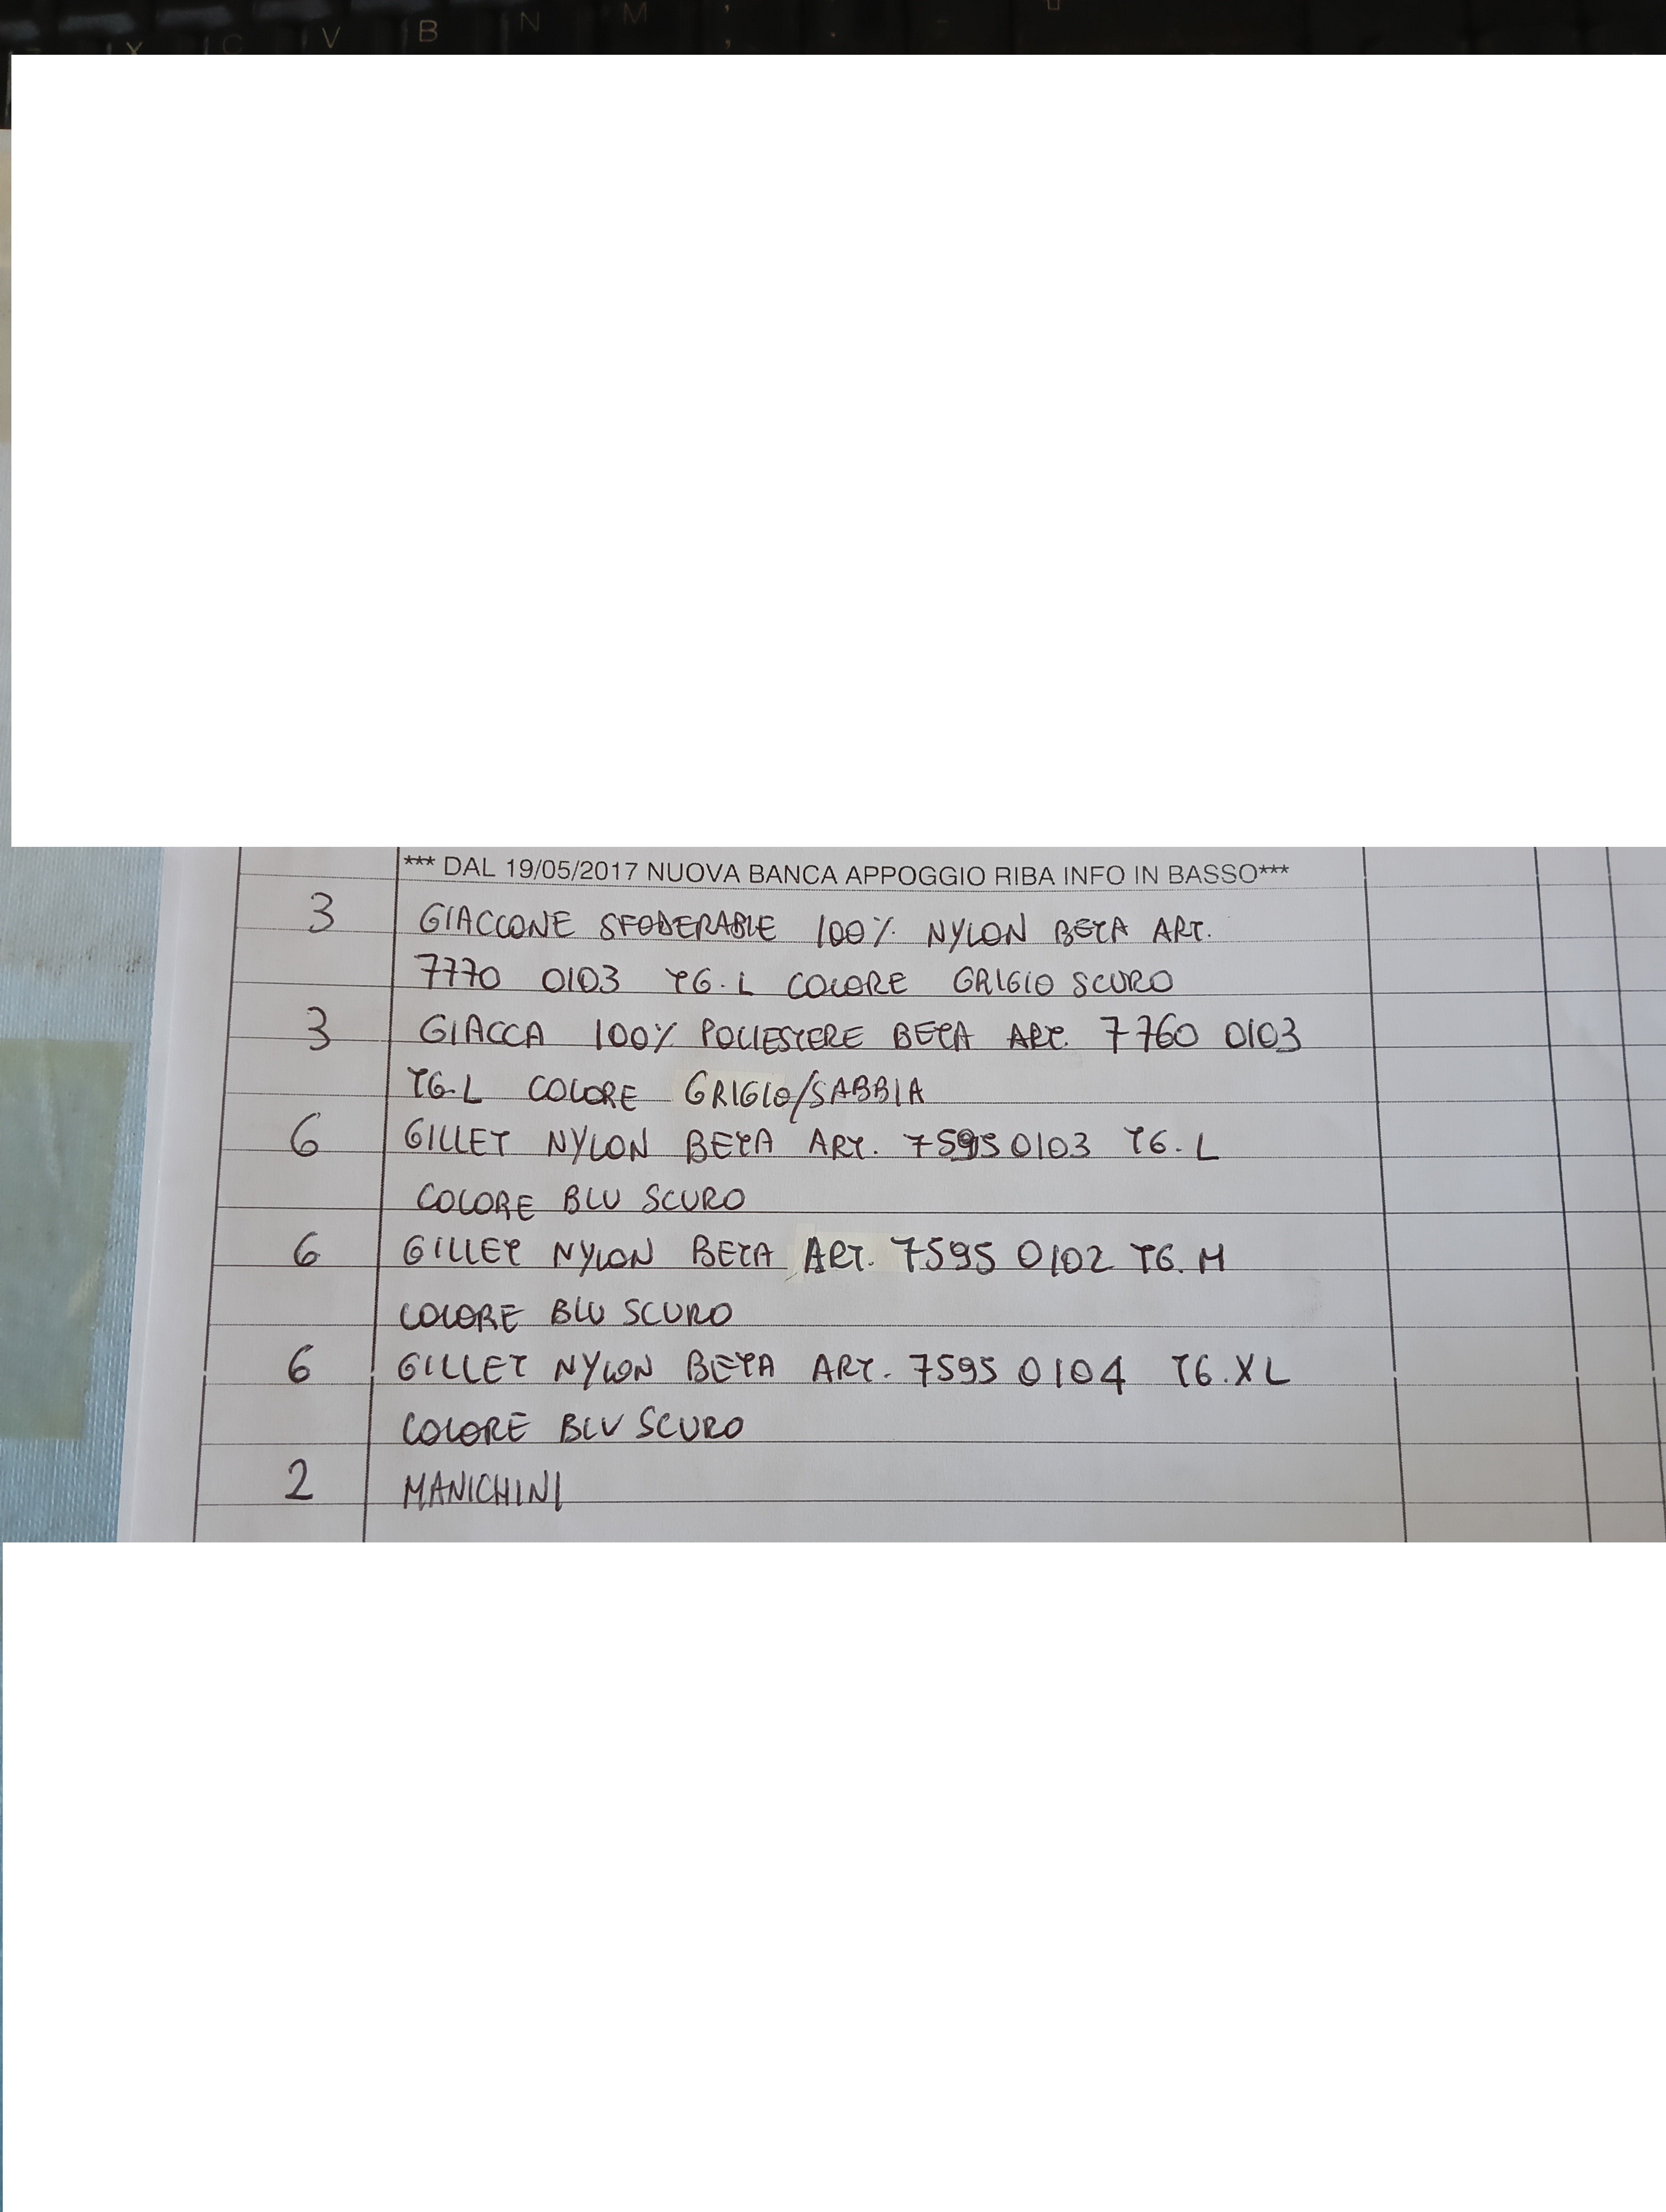 X C V B N M
*** DAL 19/05/2017 NUOVA BANCA APPOGGIO RIBA INFO IN BASSO***
3 GIACCONE SFODERABLE 100% NYLON BETA ART.
7770 0103 TG.L COLORE GRIGIO SCURO
3 GIACCA 100% POLIESTERE BETA ART. 7760 0103
TG.L COLORE GRIGIO/SABBIA
6 GILLET NYLON BETA ART. 7595 0103 TG.L
COLORE BLU SCURO
6 GILLET NYLON BETA ART. 7595 0102 TG.M
COLORE BLU SCURO
6 GILLET NYLON BETA ART. 7595 0104 TG.XL
COLORE BLU SCURO
2 MANICHINI